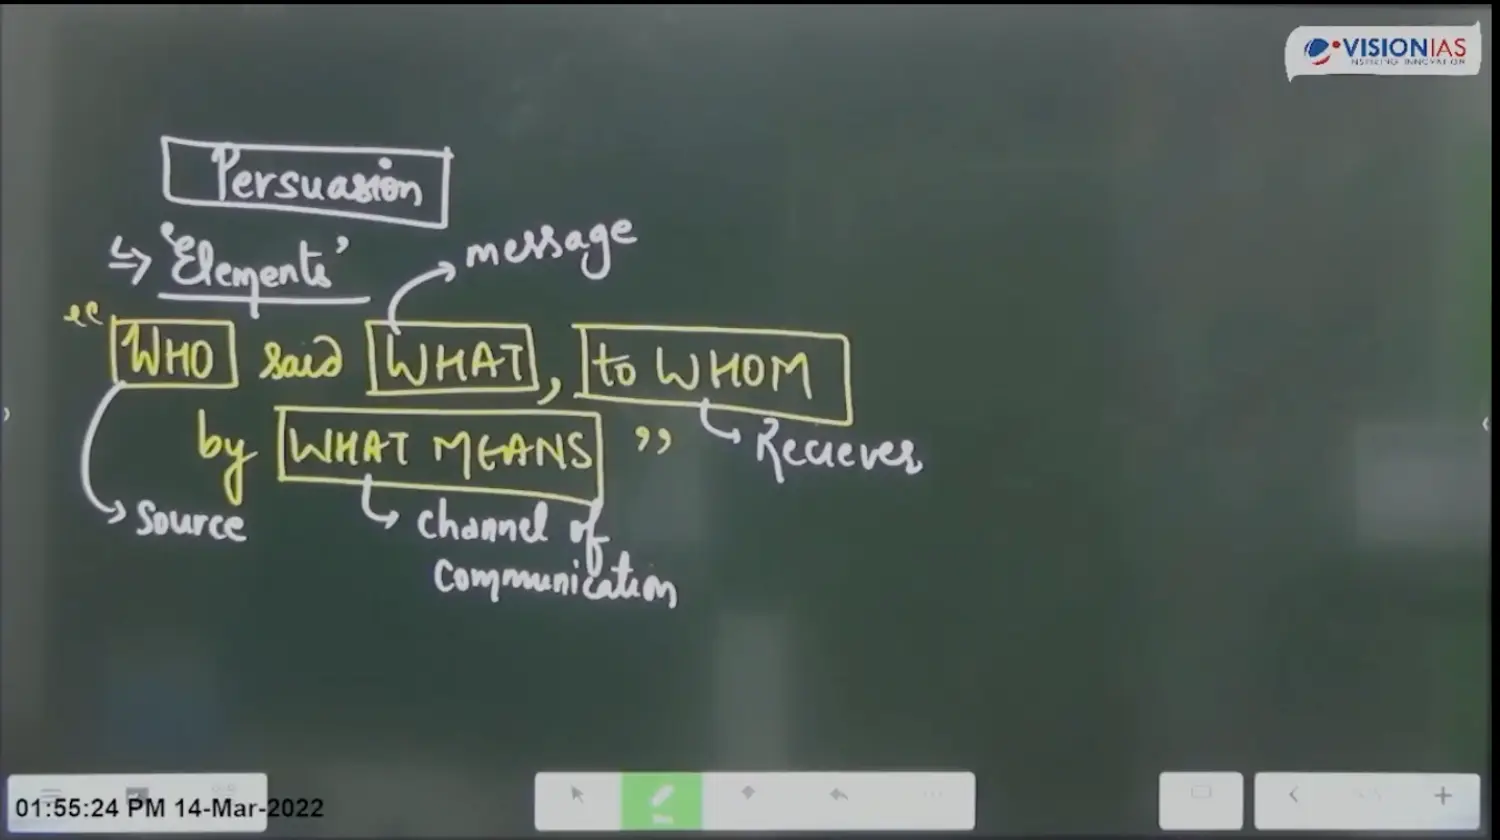 VISIONIAS
INSPIRING INNOVATION
Persuasion
↳ 'Elements'
message
"WHO said WHAT, to WHOM
by WHAT MEANS"
Reciever
Source
channel of
communication
01:55:24 PM 14-Mar-2022